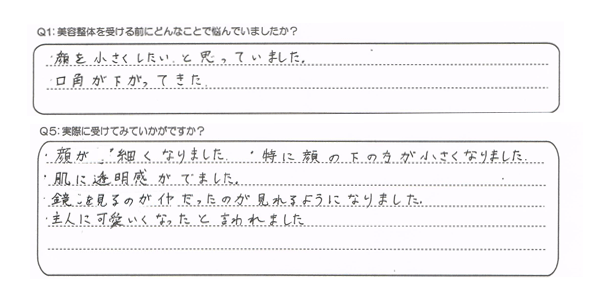 Q1：美容整体を受ける前にどんなことで悩んでいましたか？
・顔を小さくしたいと思っていました。
・口角が下がってきた
Q5：実際に受けてみていかがですか？
・顔が細くなりました。・特に顔の下の方が小さくなりました。
・肌に透明感がでました。
・鏡を見るのがイヤだったのが見れるようになりました。
・主人に可愛いくなったと言われました